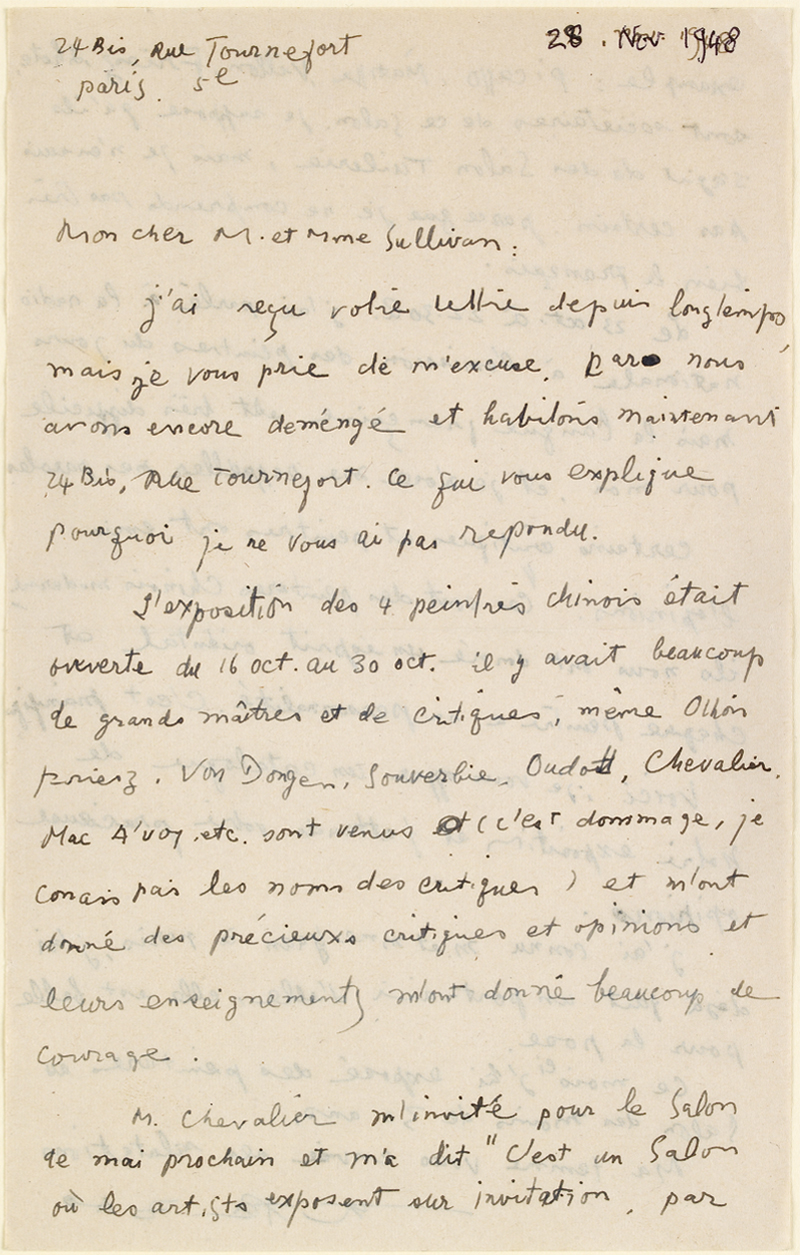 24 Bis, Rue Tournefort
28 . Nov 1948
paris. 5e
Mon cher M. et Mme Sullivan :
j'ai reçu votre lettre depuis longtemps,
mais je vous prie de m'excuse, par nous
avons encore deméngé et habitons maintenant
24 Bis, Rue Tournefort. Ce qui vous explique
pourquoi je ne vous ai pas repondu.
L'exposition des 4 peintres chinois était
ouverte du 16 oct. au 30 oct. il y avait beaucoup
de grands maîtres et de critiques, même Othon
Friesz. Von Dongen, Souverbie, Oudott, Chevalier,
Mac A'voy .etc. sont venus et (c'est dommage, je
conais pas les noms des critiques ) et m'ont
donné des précieuxs critiques et opinions et
leurs enseignements m'ont donné beaucoup de
courage .
M. Chevalier m'invité pour le Salon
de mai prochain et m'a dit "C'est un Salon
où les artists exposent sur invitation, par